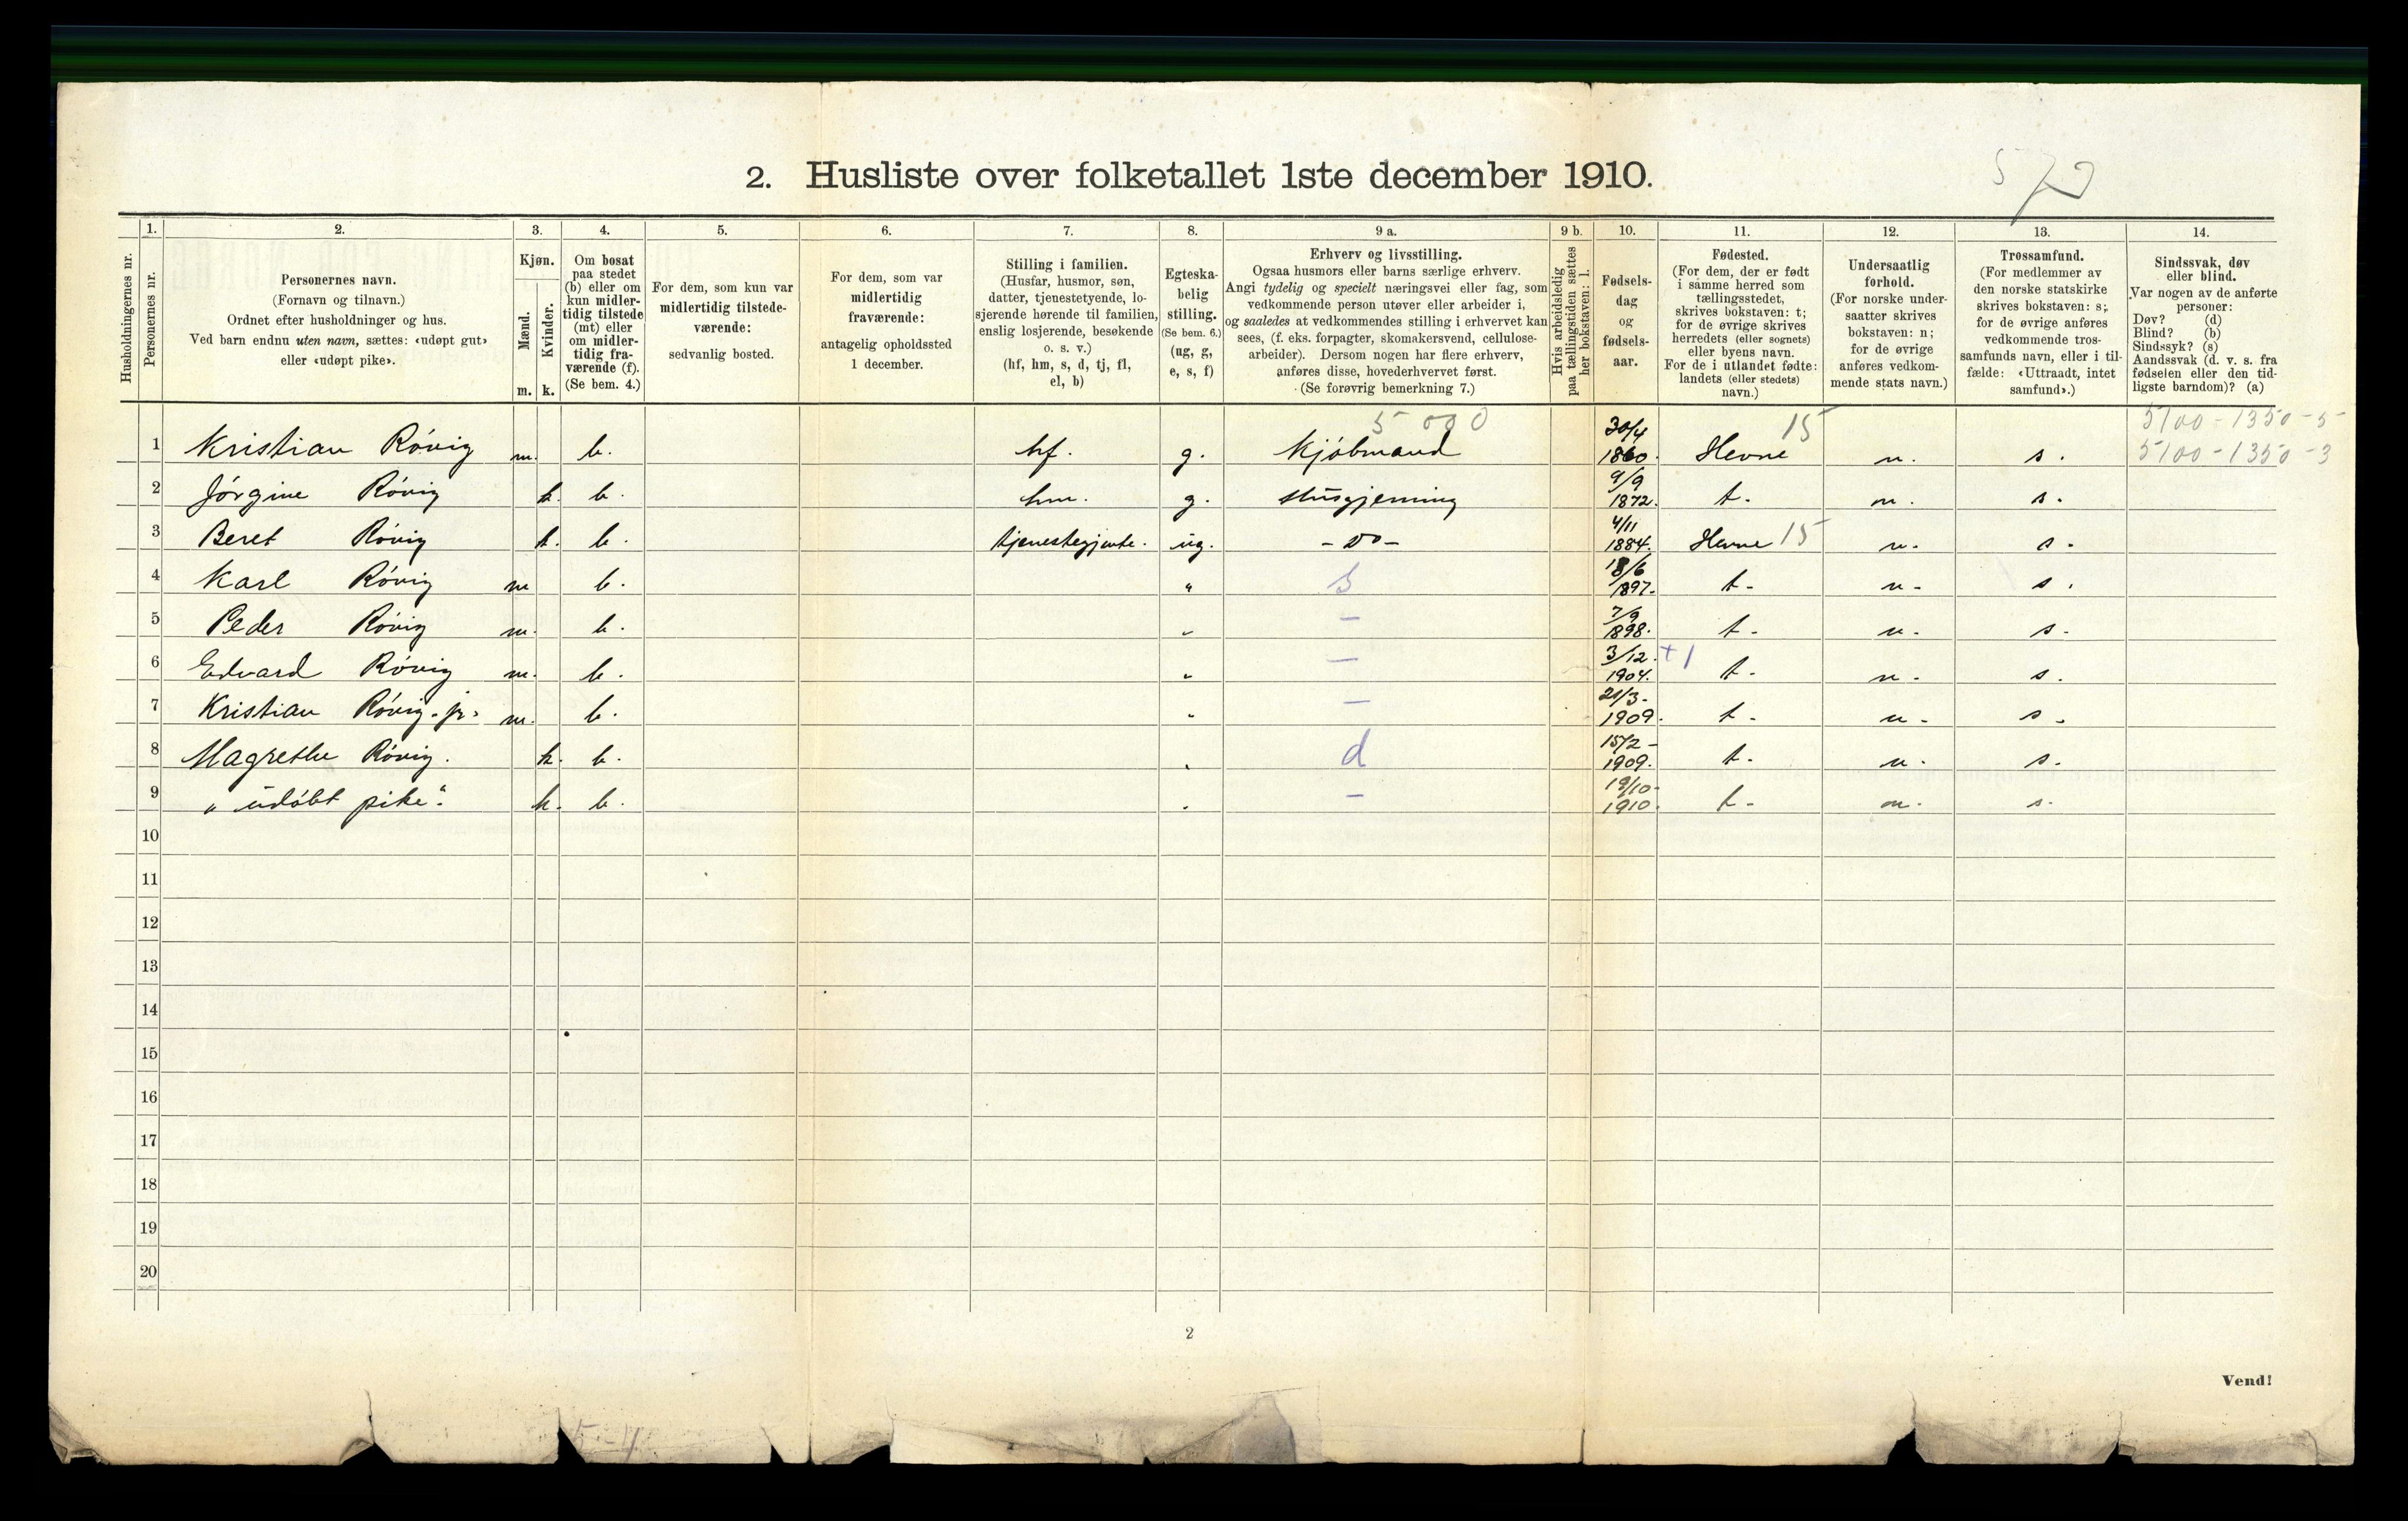 570
2. Husliste over folketallet 1ste december 1910.
Husholdningernes nr.
1.
Personernes nr.
2.
Personernes navn.
(Fornavn og tilnavn.)
Ordnet efter husholdninger og hus.
Ved barn endnu uten navn, sættes: «udøpt gut»
eller «udøpt pike».
3.
Kjøn.
Mænd.
Kvinder.
m. k.
4.
Om bosat
paa stedet
(b) eller om
kun midler-
tidig tilstede
(mt) eller
om midler-
tidig fra-
værende (f).
(Se bem. 4.)
5.
For dem, som kun var
midlertidig tilstede-
værende:
sedvanlig bosted.
6.
For dem, som var
midlertidig
fraværende:
antagelig opholdssted
1 december.
7.
Stilling i familien.
(Husfar, husmor, søn,
datter, tjenestetyende, lo-
sjerende hørende til familien,
enslig losjerende, besøkende
o. s. v.)
(hf, hm, s, d, tj, fl,
el, b)
8.
Egteska-
belig
stilling.
(Se bem. 6.)
(ug, g,
e, s, f)
9 a.
Erhverv og livsstilling.
Ogsaa husmors eller barns særlige erhverv.
Angi tydelig og specielt næringsvei eller fag, som
vedkommende person utøver eller arbeider i,
og saaledes at vedkommendes stilling i erhvervet kan
sees, (f. eks. forpagter, skomakersvend, cellulose-
arbeider). Dersom nogen har flere erhverv,
anføres disse, hovederhvervet først.
(Se forøvrig bemerkning 7.)
9 b.
Hvis arbeidsledig
paa tællingstiden sættes
her bokstaven: l.
10.
Fødsels-
dag
og
fødsels-
aar.
11.
Fødested.
(For dem, der er født
i samme herred som
tællingsstedet,
skrives bokstaven: t;
for de øvrige skrives
herredets (eller sognets)
eller byens navn.
For de i utlandet fødte:
landets (eller stedets)
navn.)
12.
Undersaatlig
forhold.
(For norske under-
saatter skrives
bokstaven: n;
for de øvrige
anføres vedkom-
mende stats navn.)
13.
Trossamfund.
(For medlemmer av
den norske statskirke
skrives bokstaven: s;
for de øvrige anføres
vedkommende tros-
samfunds navn, eller i til-
fælde: «Uttraadt, intet
samfund».)
14.
Sindssvak, døv
eller blind.
Var nogen av de anførte
personer:
Døv? (d)
Blind? (b)
Sindssyk? (s)
Aandssvak (d. v. s. fra
fødselen eller den tid-
ligste barndom)? (a)
5000 15 5100-1350-5
1 Kristian Róvig m. b. hf. g. Kjóbmand 30/4 1860. Hevne n. s. 5100-1350-3
2 Jórgine Róvig k. b. hm. g. Husgjerning 9/9 1872. t. n. s.
3 Beret Róvig k. b. tjenestegjente. ug. -do- 4/11 1884. Hevne 15 n. s.
4 Karl Róvig m b. " s 18/6 1897. t. n. s.
5 Peder Róvig m. b. " — 7/9 1898. t. n. s.
6 Edvard Róvig m. b. " — 3/12. 1904. +1 t. n. s.
7 Kristian Róvig. jr. m. b. " — 21/3- 1909. t. n. s.
8 Magrethe Róvig. k. b. " d 15/2- 1909. t. n. s.
9 "udóbt pike". k. b. " — 19/10- 1910. t. n. s.
10
11
12
13
14
15
16
17
18
19
20
2
Vend!
5-4